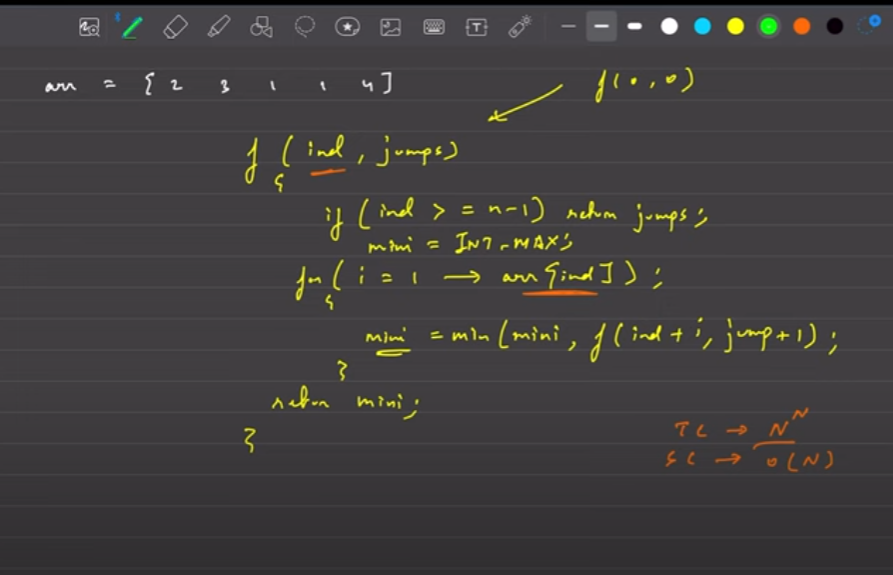 arr = { 2 3 1 1 4 ]
f(0,0)
f ( ind , jumps)
{
if ( ind > = n-1) return jumps;
mini = INT_MAX;
for ( i = 1 → arr[ind] ) ;
{
mini = min(mini, f(ind + i, jump+1) ;
}
return mini;
}
TC → N^N
SC → O(N)